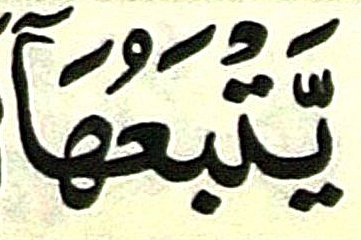 يَّتْبَعُهَآ